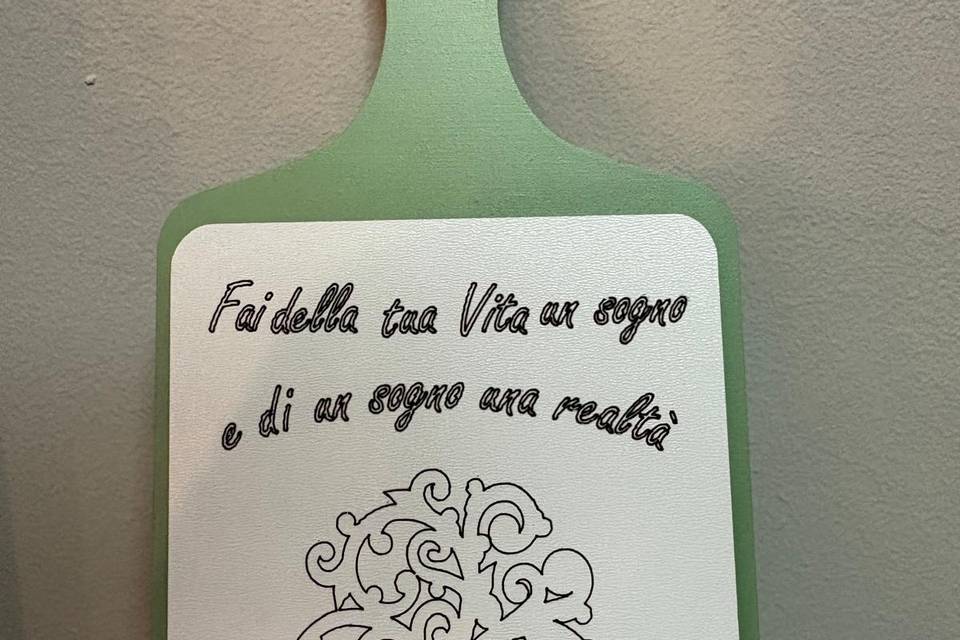 Fai della tua Vita un sogno
e di un sogno una realtà